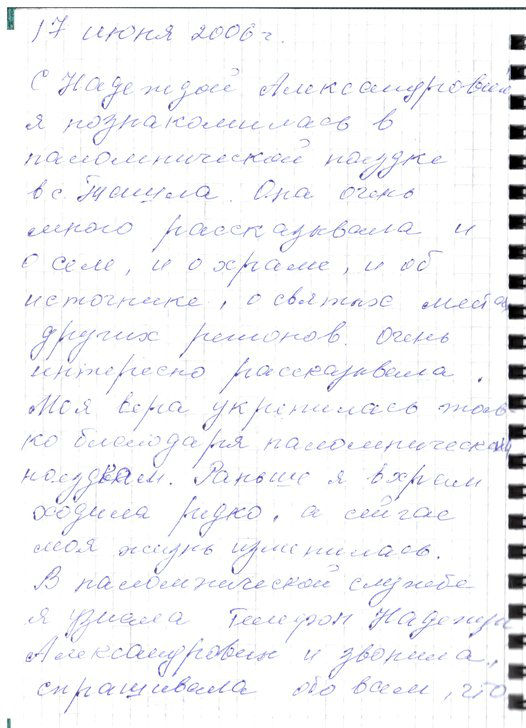 17 июня 2006 г.
С Надеждой Александровной
я познакомилась в
паломнической поездке
в с. Ташла. Она очень
много рассказывала и
о селе, и о храме, и об
источнике, о святых местах
других регионов. Очень
интересно рассказывала.
Моя вера укрепилась толь-
ко благодаря паломническим
поездкам. Раньше я в храм
ходила редко, а сейчас
моя жизнь изменилась.
В паломнической службе
я узнала телефон Надежды
Александровны и звонила,
спрашивала обо всем, что